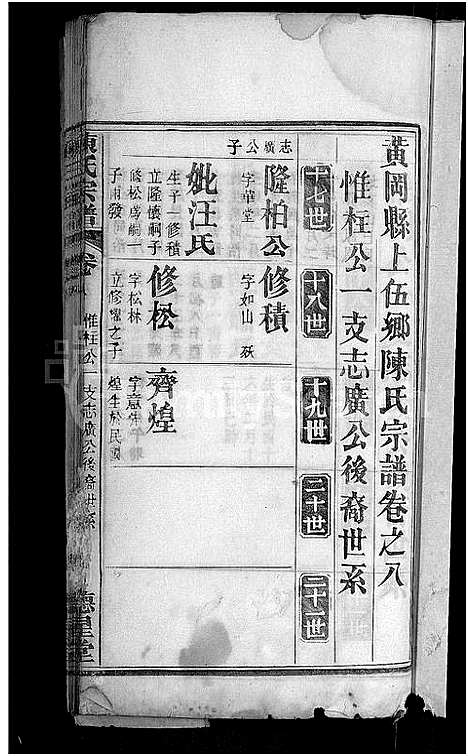 黃岡縣上伍鄉陳氏宗譜卷之八
惟枉公一支志廣公後裔世系
十七世
十八世
十九世
二十世
二十一世
志廣公子
隆柏公
字華堂
妣汪氏
生子一修積
立隆慎嗣子
修松為嗣一
子雨發
修積
字如山 殀
修松
字松林
立修燿之子
齊煌
字意生
煌生於民國
陳氏宗譜
惟枉公一支志廣公後裔世系
德星堂